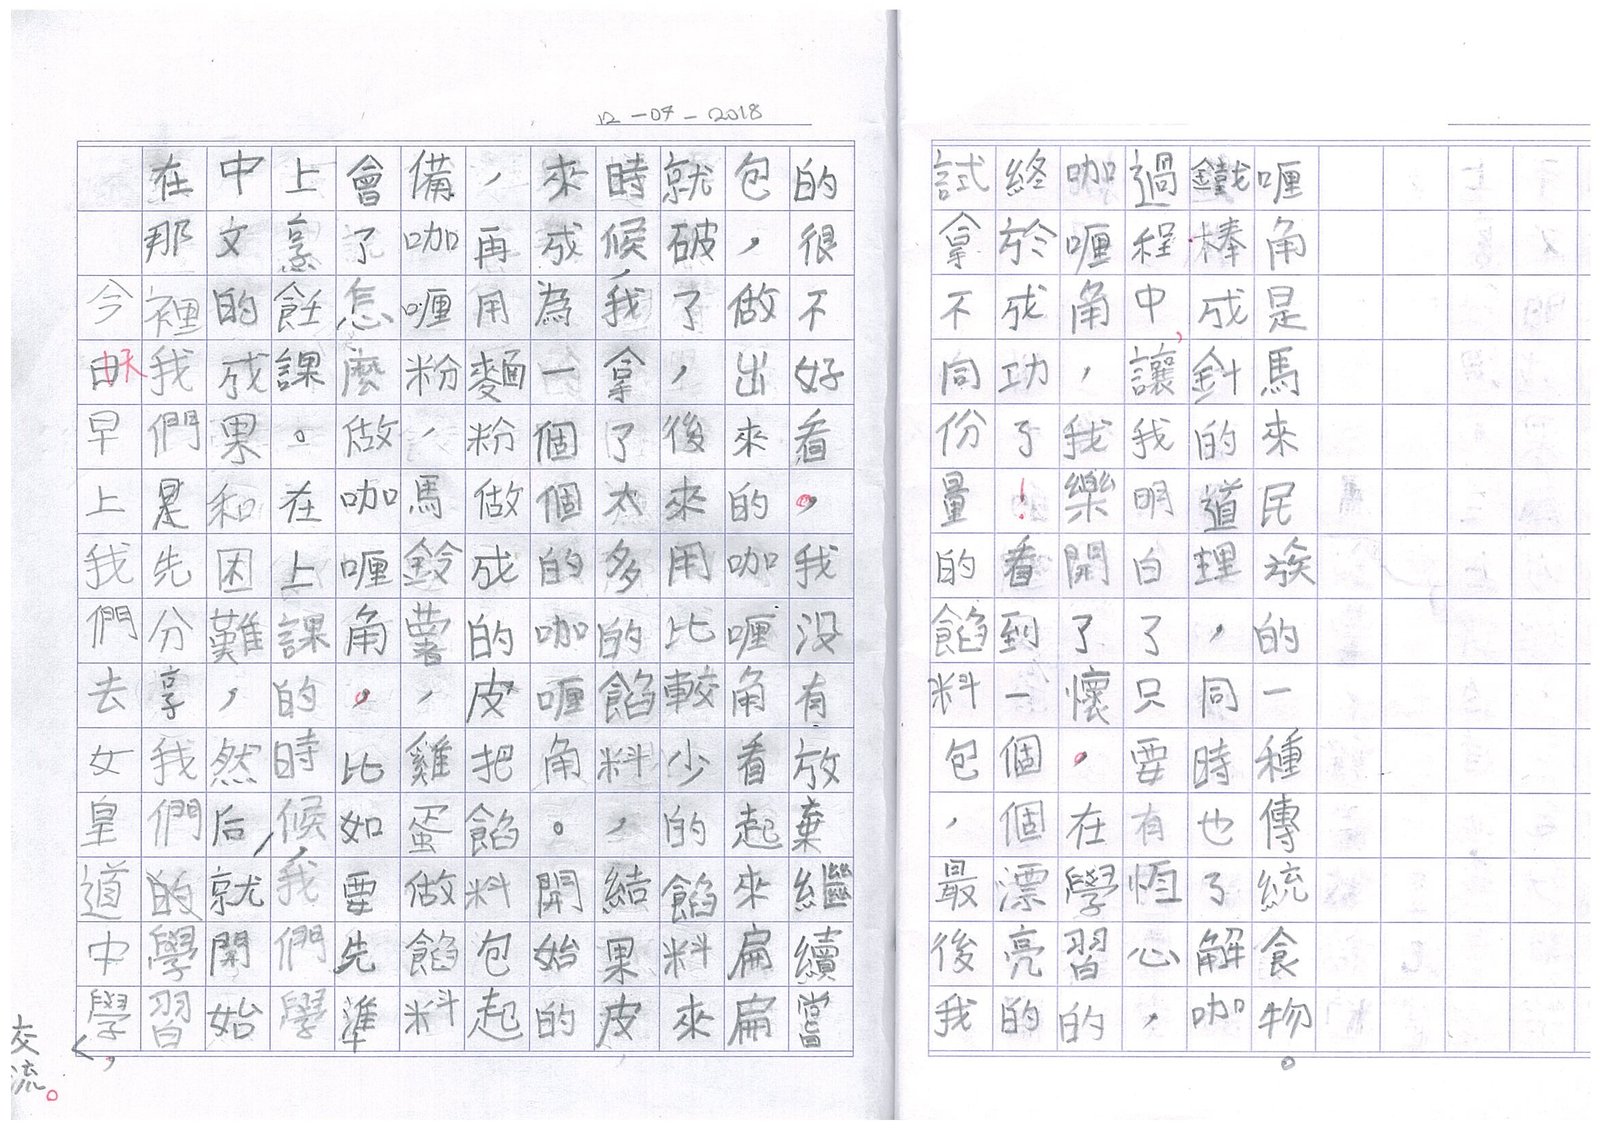 12-07-2018
今天早上我們去女皇道中學，交流。
在那裡我們是先分享我們的學習
中文的成果和困難，然后，就開始
上烹飪課。在上課的時候，我們學
會了怎麼做咖喱角，比如要先準
備咖喱粉，馬鈴薯，雞蛋做餡料
，再用麵粉做成的皮把餡料包起
來成為一個個的咖喱角。開始的
時候，我拿了太多的餡料，結果皮
就破了，後來用比較少的餡料來
包，做出來的咖喱角看起來扁扁
的很不好看。我沒有放棄繼續嘗
試拿不同份量的餡料包，最後我
終於成功了！看到一個個漂亮的
咖喱角，我樂開了懷。在學習的
過程中，讓我明白了只要有恆心，
鐵棒成針的道理，同時也了解咖
喱角是馬來民族的一種傳統食物。